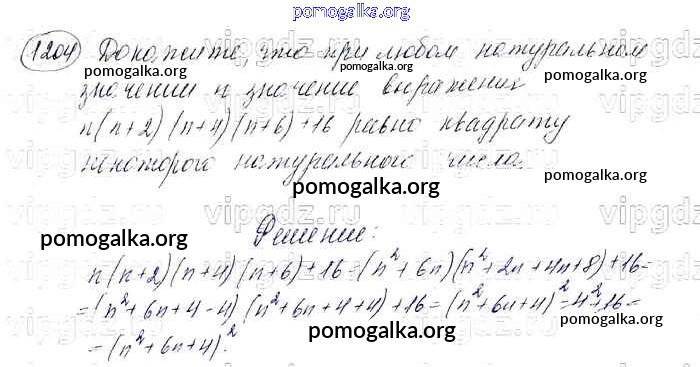 pomogalka.org
1204 Докажите, что при любом натуральном
pomogalka.org pomogalka.org
значении n значение выражения
n(n+2)(n+4)(n+6)+16 равно квадрату
некоторого натурального числа.
pomogalka.org pomogalka.org
vipgdz.ru vipgdz.ru
pomogalka.org Решение: pomogalka.org
n(n+2)(n+4)(n+6)+16=(n²+6n)(n²+2n+4n+8)+16=
=(n²+6n+4-4)(n²+6n+4+4)+16=(n²+6n+4)²-4²+16=
=(n²+6n+4)².
pomogalka.org pomogalka.org